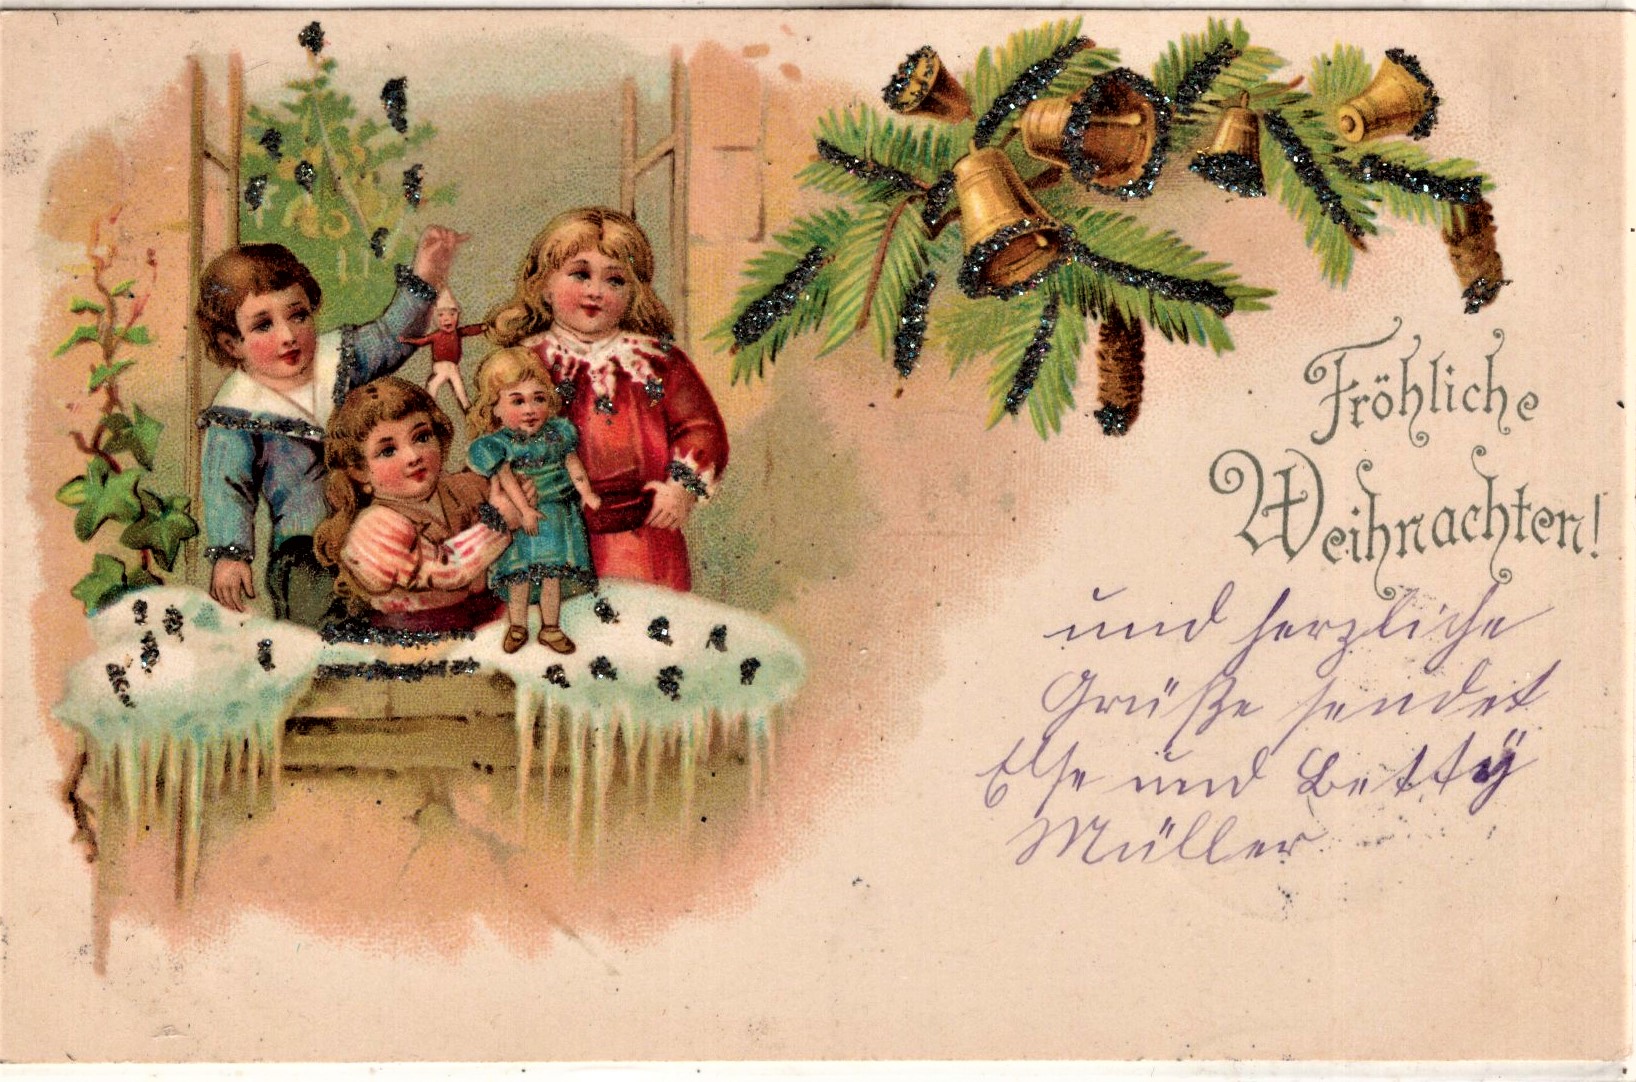 Fröhliche
Weihnachten!
und herzliche
Grüße sendet
Else und Betty
Müller